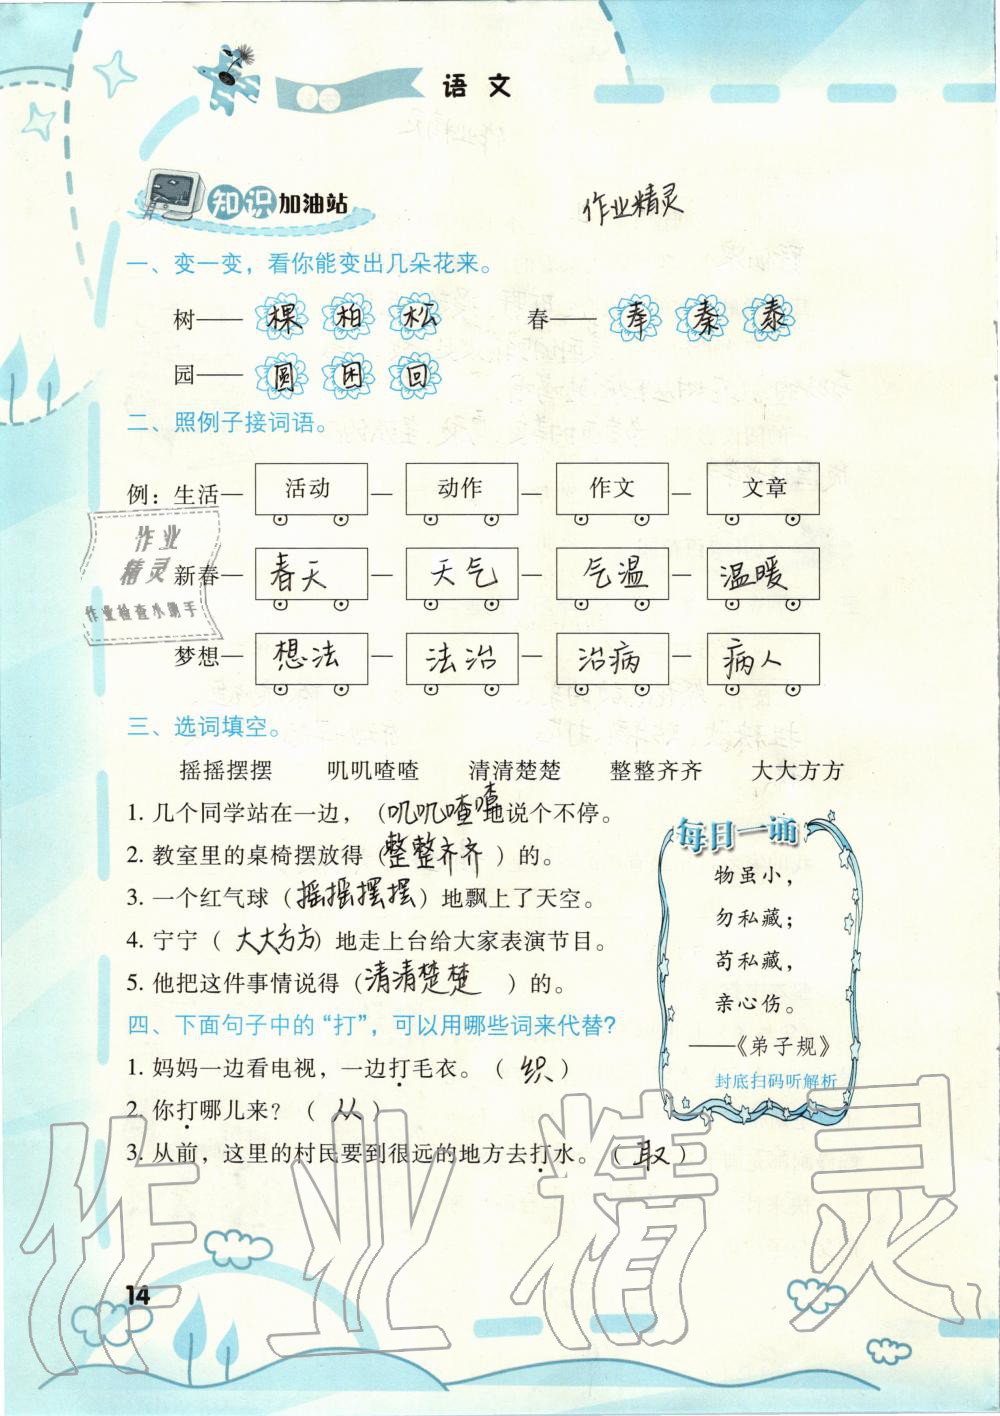 语文
知识加油站
作业精灵
一、变一变，看你能变出几朵花来。
树—— 棵 柏 松 春—— 奉 秦 泰
园—— 圆 困 回
二、照例子接词语。
例：生活— 活动 — 动作 — 作文 — 文章
作业
精灵
作业检查小助手
新春— 春天 — 天气 — 气温 — 温暖
梦想— 想法 — 法治 — 治病 — 病人
三、选词填空。
摇摇摆摆 叽叽喳喳 清清楚楚 整整齐齐 大大方方
1. 几个同学站在一边，（叽叽喳喳 地说个不停。
2. 教室里的桌椅摆放得（整整齐齐）的。
3. 一个红气球（摇摇摆摆）地飘上了天空。
4. 宁宁（大大方方）地走上台给大家表演节目。
5. 他把这件事情说得（清清楚楚）的。
每日一诵
物虽小，
勿私藏；
苟私藏，
亲心伤。
——《弟子规》
封底扫码听解析
四、下面句子中的“打”，可以用哪些词来代替？
1. 妈妈一边看电视，一边打毛衣。（织）
2. 你打哪儿来？（从）
3. 从前，这里的村民要到很远的地方去打水。（取）
作业精灵
14